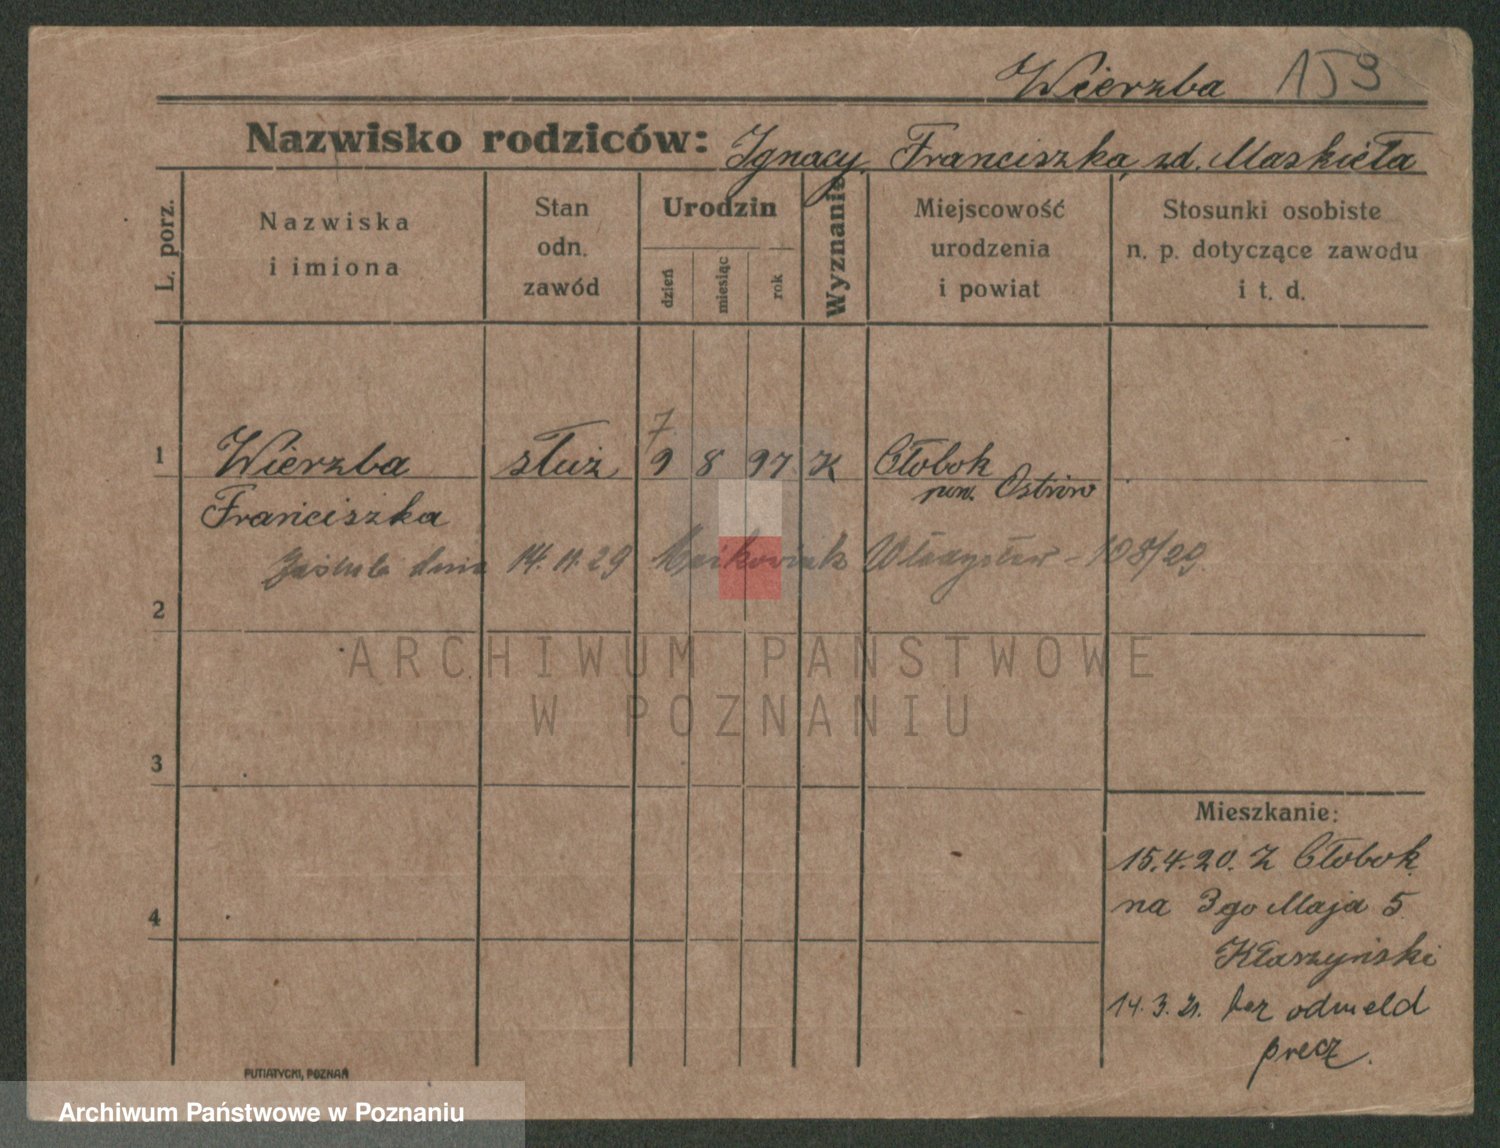 Wierzba 159
Nazwisko rodziców: Ignacy, Franciszka, zd. Maskieła
L. porz.
Nazwiska
i imiona
Stan
odn.
zawód
Urodzin
dzień
miesiąc
rok
Wyznanie
Miejscowość
urodzenia
i powiat
Stosunki osobiste
n. p. dotyczące zawodu
i t. d.
7
1 Wierzba służ 9 8 97 K Ołobok
pow. Ostrów
Franciszka
dnia 14.11.29 Władysław - 108/29.
2
ARCHIWUM PAŃSTWOWE
W POZNANIU
3
Mieszkanie:
15.4.20. Z Ołobok
na 3go Maja 5
4
Kłaszyński
14.3.21. bez odmeld
precz.
PUTIATYCKI, POZNAŃ
Archiwum Państwowe w Poznaniu